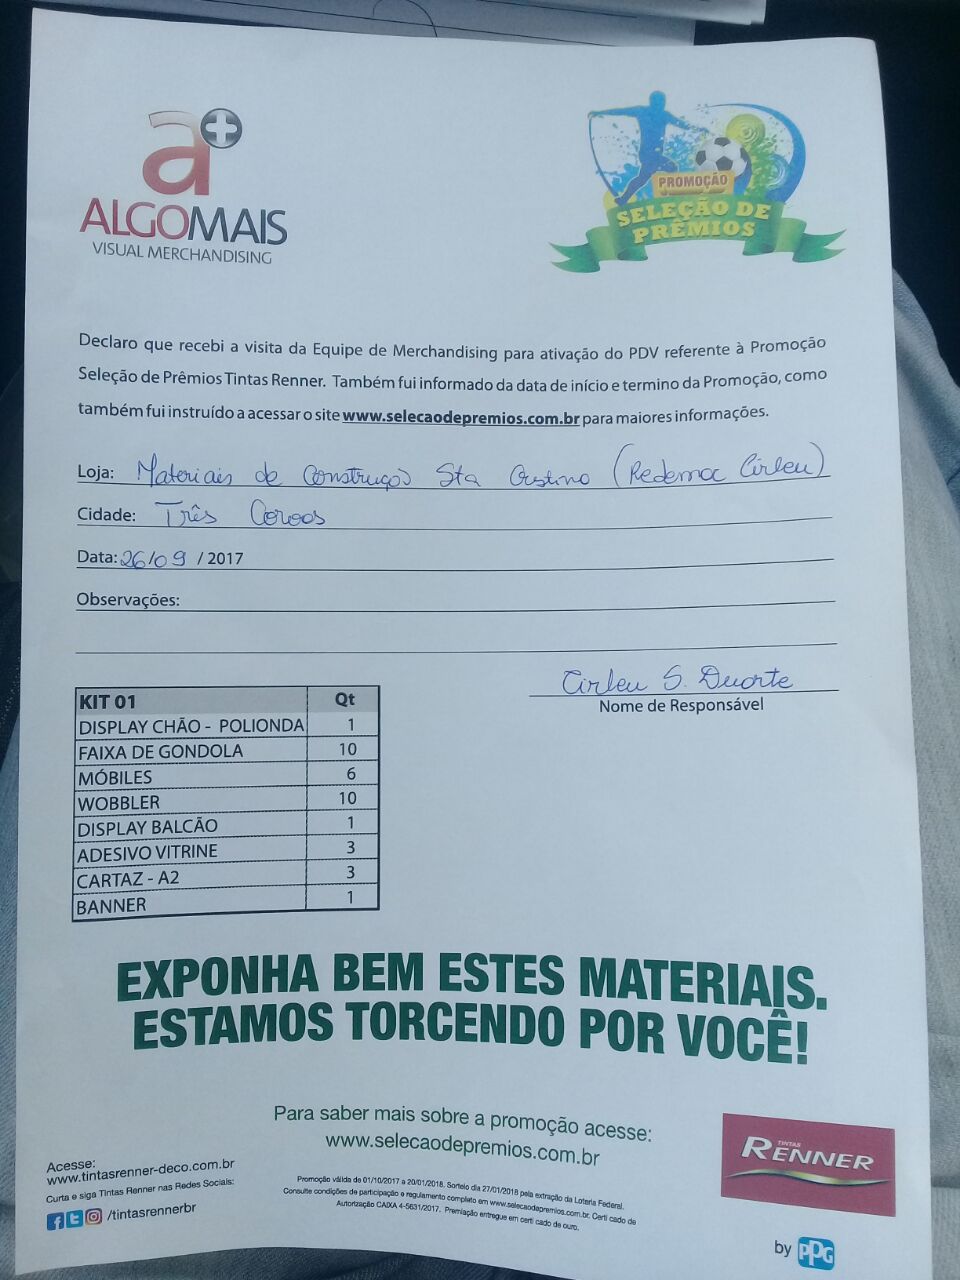 a+
ALGOMAIS
VISUAL MERCHANDISING
PROMOÇÃO
SELEÇÃO DE
PRÊMIOS
Declaro que recebi a visita da Equipe de Merchandising para ativação do PDV referente à Promoção
Seleção de Prêmios Tintas Renner. Também fui informado da data de início e termino da Promoção, como
também fui instruído a acessar o site www.selecaodepremios.com.br para maiores informações.
Loja: Materiais de Construção Sta Cristina (Redemac Cirleu)
Cidade: Três Coroas
Data: 26/09 / 2017
Observações:
Cirleu S. Duarte
Nome de Responsável
KIT 01 Qt
DISPLAY CHÃO - POLIONDA 1
FAIXA DE GONDOLA 10
MÓBILES 6
WOBBLER 10
DISPLAY BALCÃO 1
ADESIVO VITRINE 3
CARTAZ - A2 3
BANNER 1
EXPONHA BEM ESTES MATERIAIS.
ESTAMOS TORCENDO POR VOCÊ!
Para saber mais sobre a promoção acesse:
www.selecaodepremios.com.br
Acesse:
www.tintasrenner-deco.com.br
Curta e siga Tintas Renner nas Redes Sociais:
/tintasrennerbr
Promoção válida de 01/10/2017 a 20/01/2018. Sorteio dia 27/01/2018 pela extração da Loteria Federal.
Consulte condições de participação e regulamento completo em www.selecaodepremios.com.br. Certi cado de
Autorização CAIXA 4-5631/2017. Premiação entregue em certi cado de ouro.
TINTAS
RENNER
by PPG